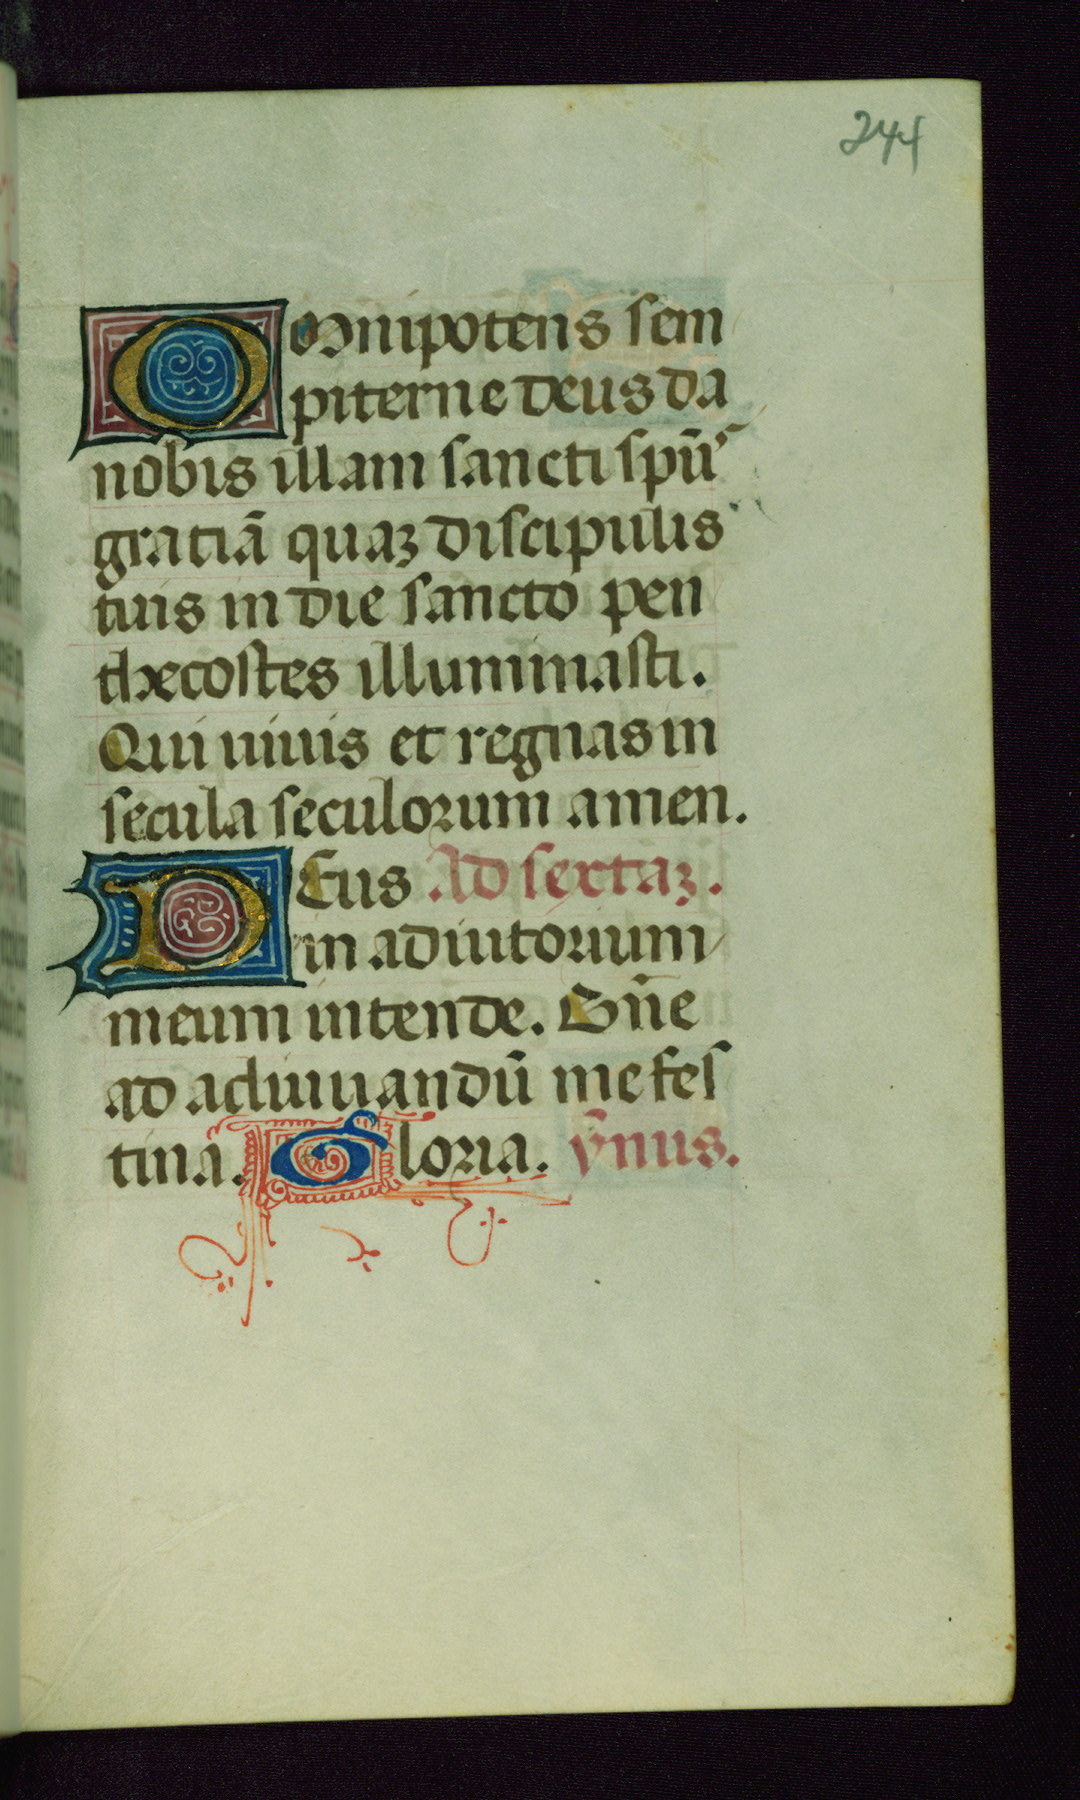 244
Omnipotens sem
piterne deus da
nobis illam sancti spūs
gratiā quaʒ discipulis
tuis in die sancto pen
thecostes illuminasti.
Qui uiuis et regnas in
secula seculorum amen.
DEus Ad sextaʒ.
in adiutorium
meum intende. Dn̄e
ad adiuuandū me fes
tina. Gloria. ȳnus.